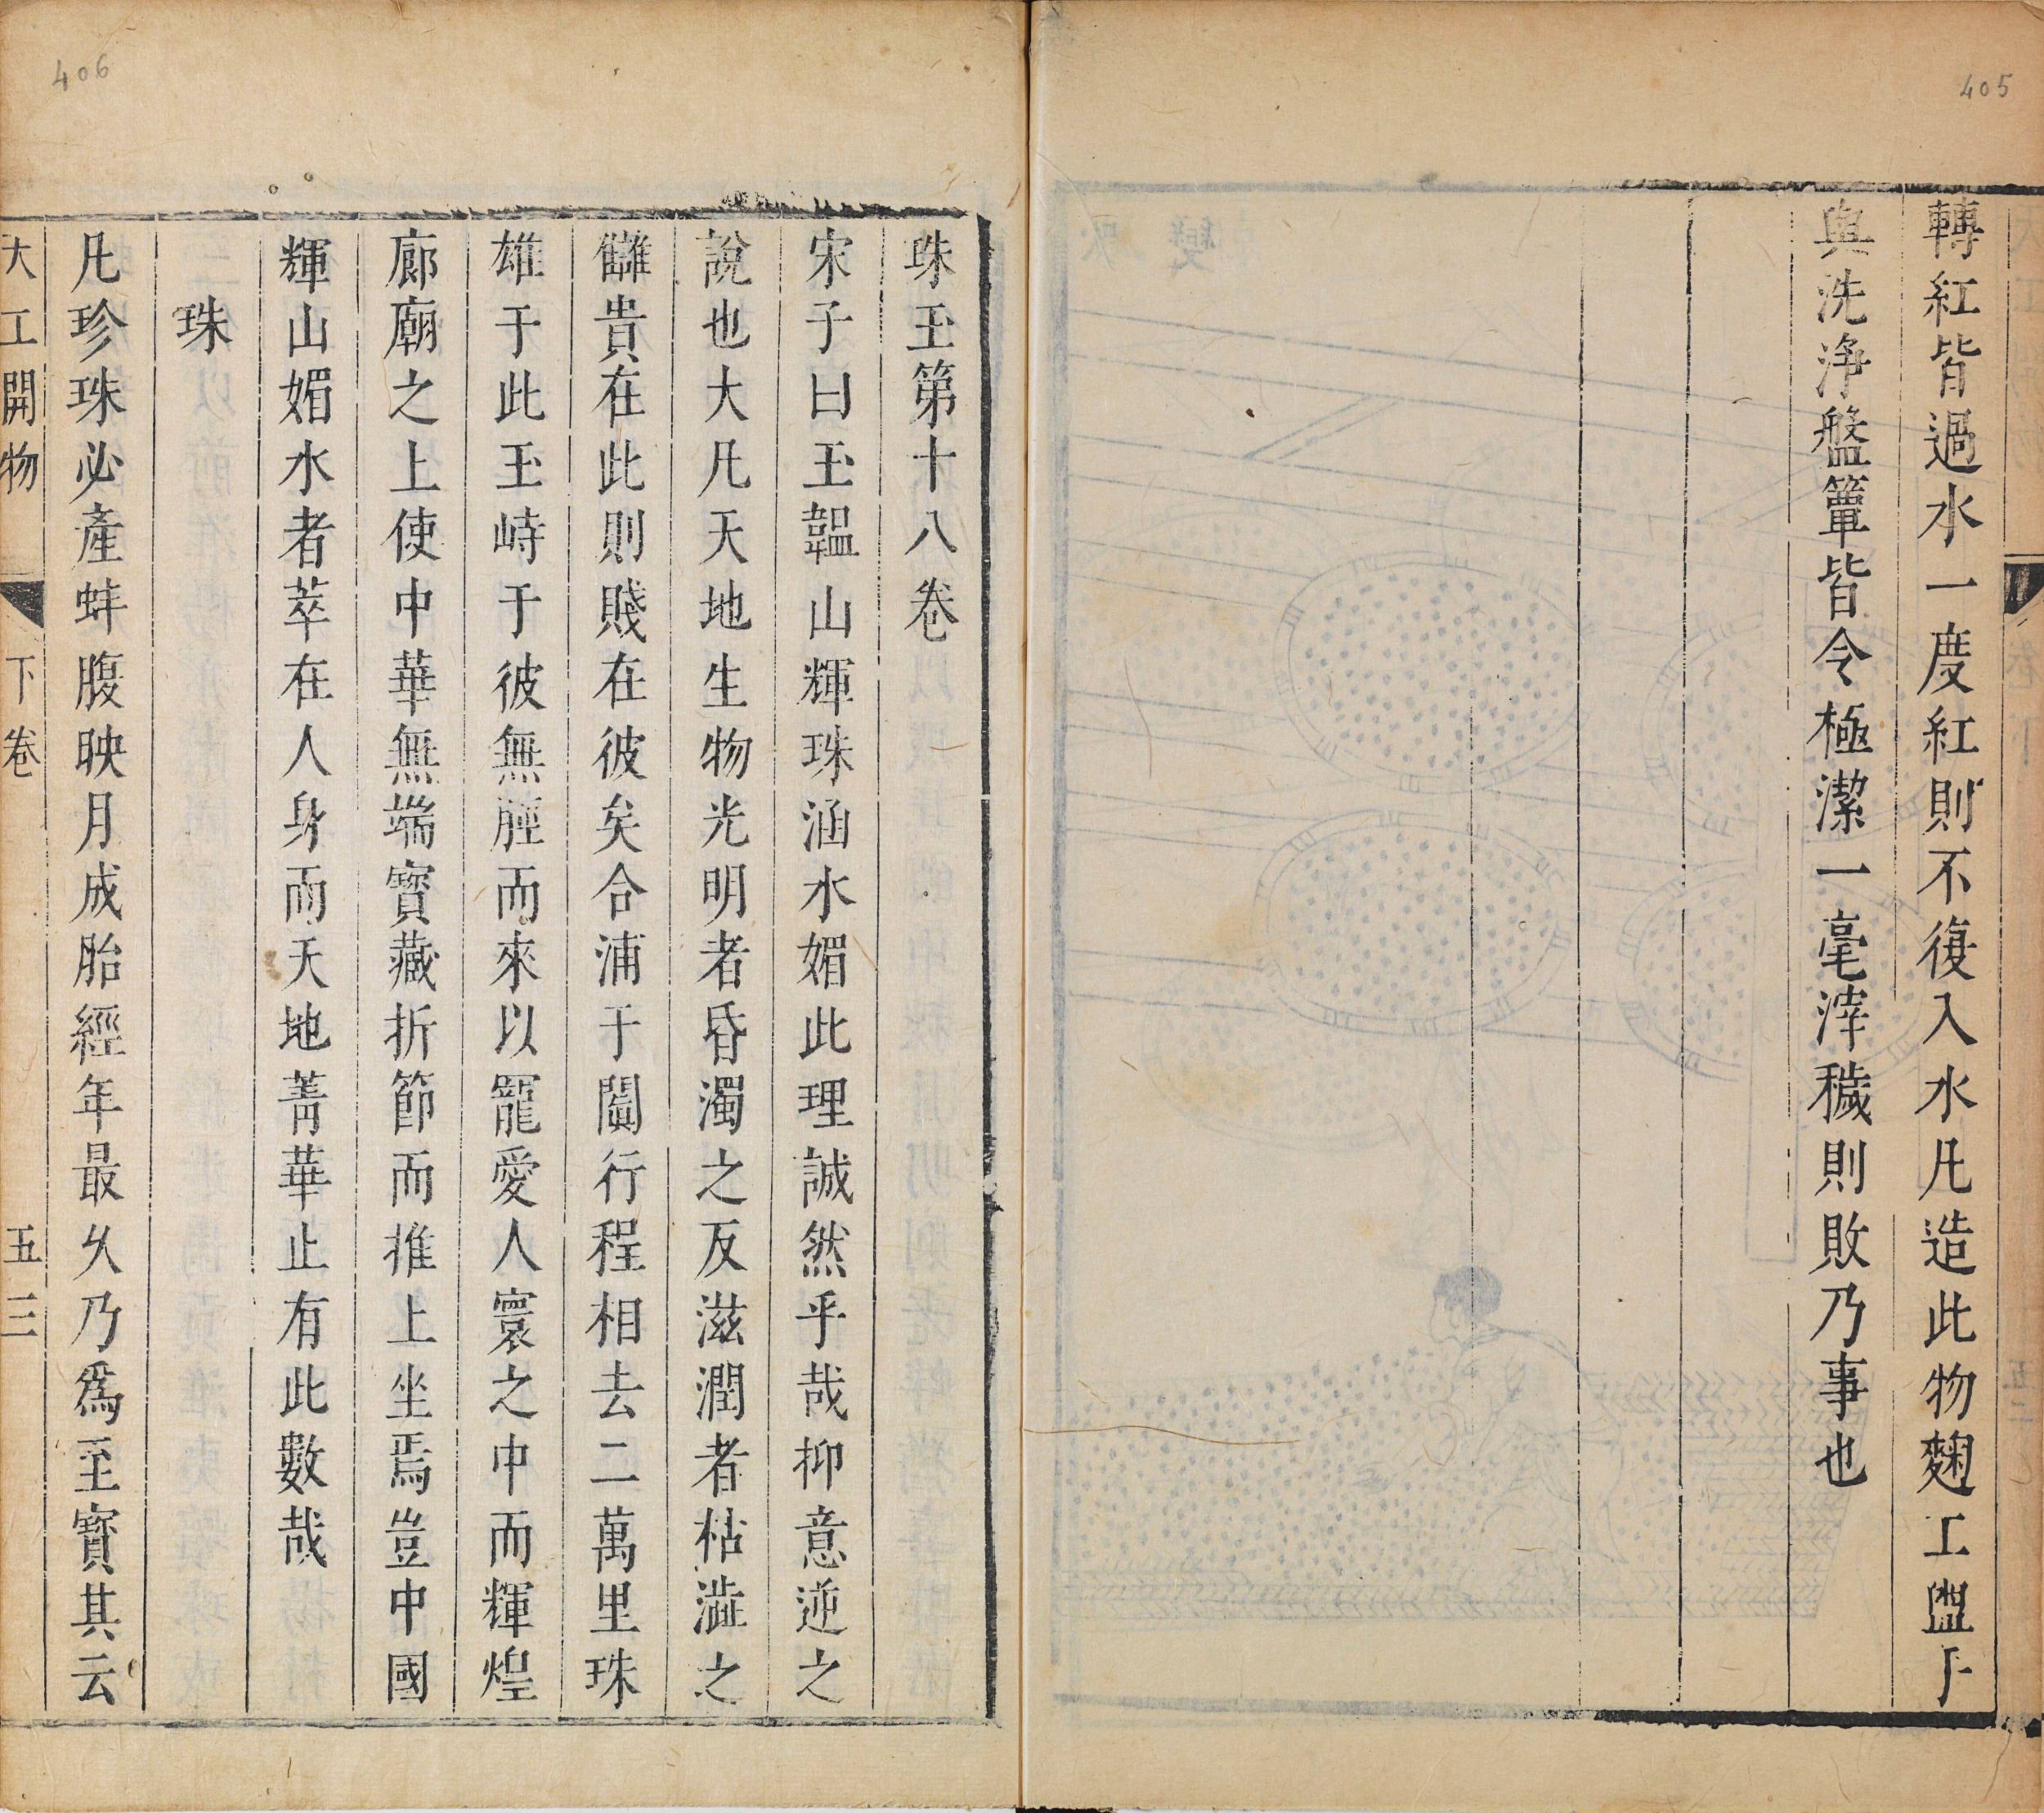 405
轉紅皆過水一度紅則不復入水凡造此物麴工盥手
與洗淨盤簟皆令極潔一毫滓穢則敗乃事也
406
珠玉第十八卷
宋子曰玉韞山輝珠涵水媚此理誠然乎哉抑意逆之
說也大凡天地生物光明者昏濁之反滋潤者枯澁之
讎貴在此則賤在彼矣合浦于闐行程相去二萬里珠
雄于此玉峙于彼無脛而來以寵愛人寰之中而輝煌
廊廟之上使中華無端寶藏折節而推上坐焉豈中國
輝山媚水者萃在人身而天地菁華止有此數哉
珠
凡珍珠必產蚌腹映月成胎經年最久乃爲至寶其云
天工開物 下卷 五三